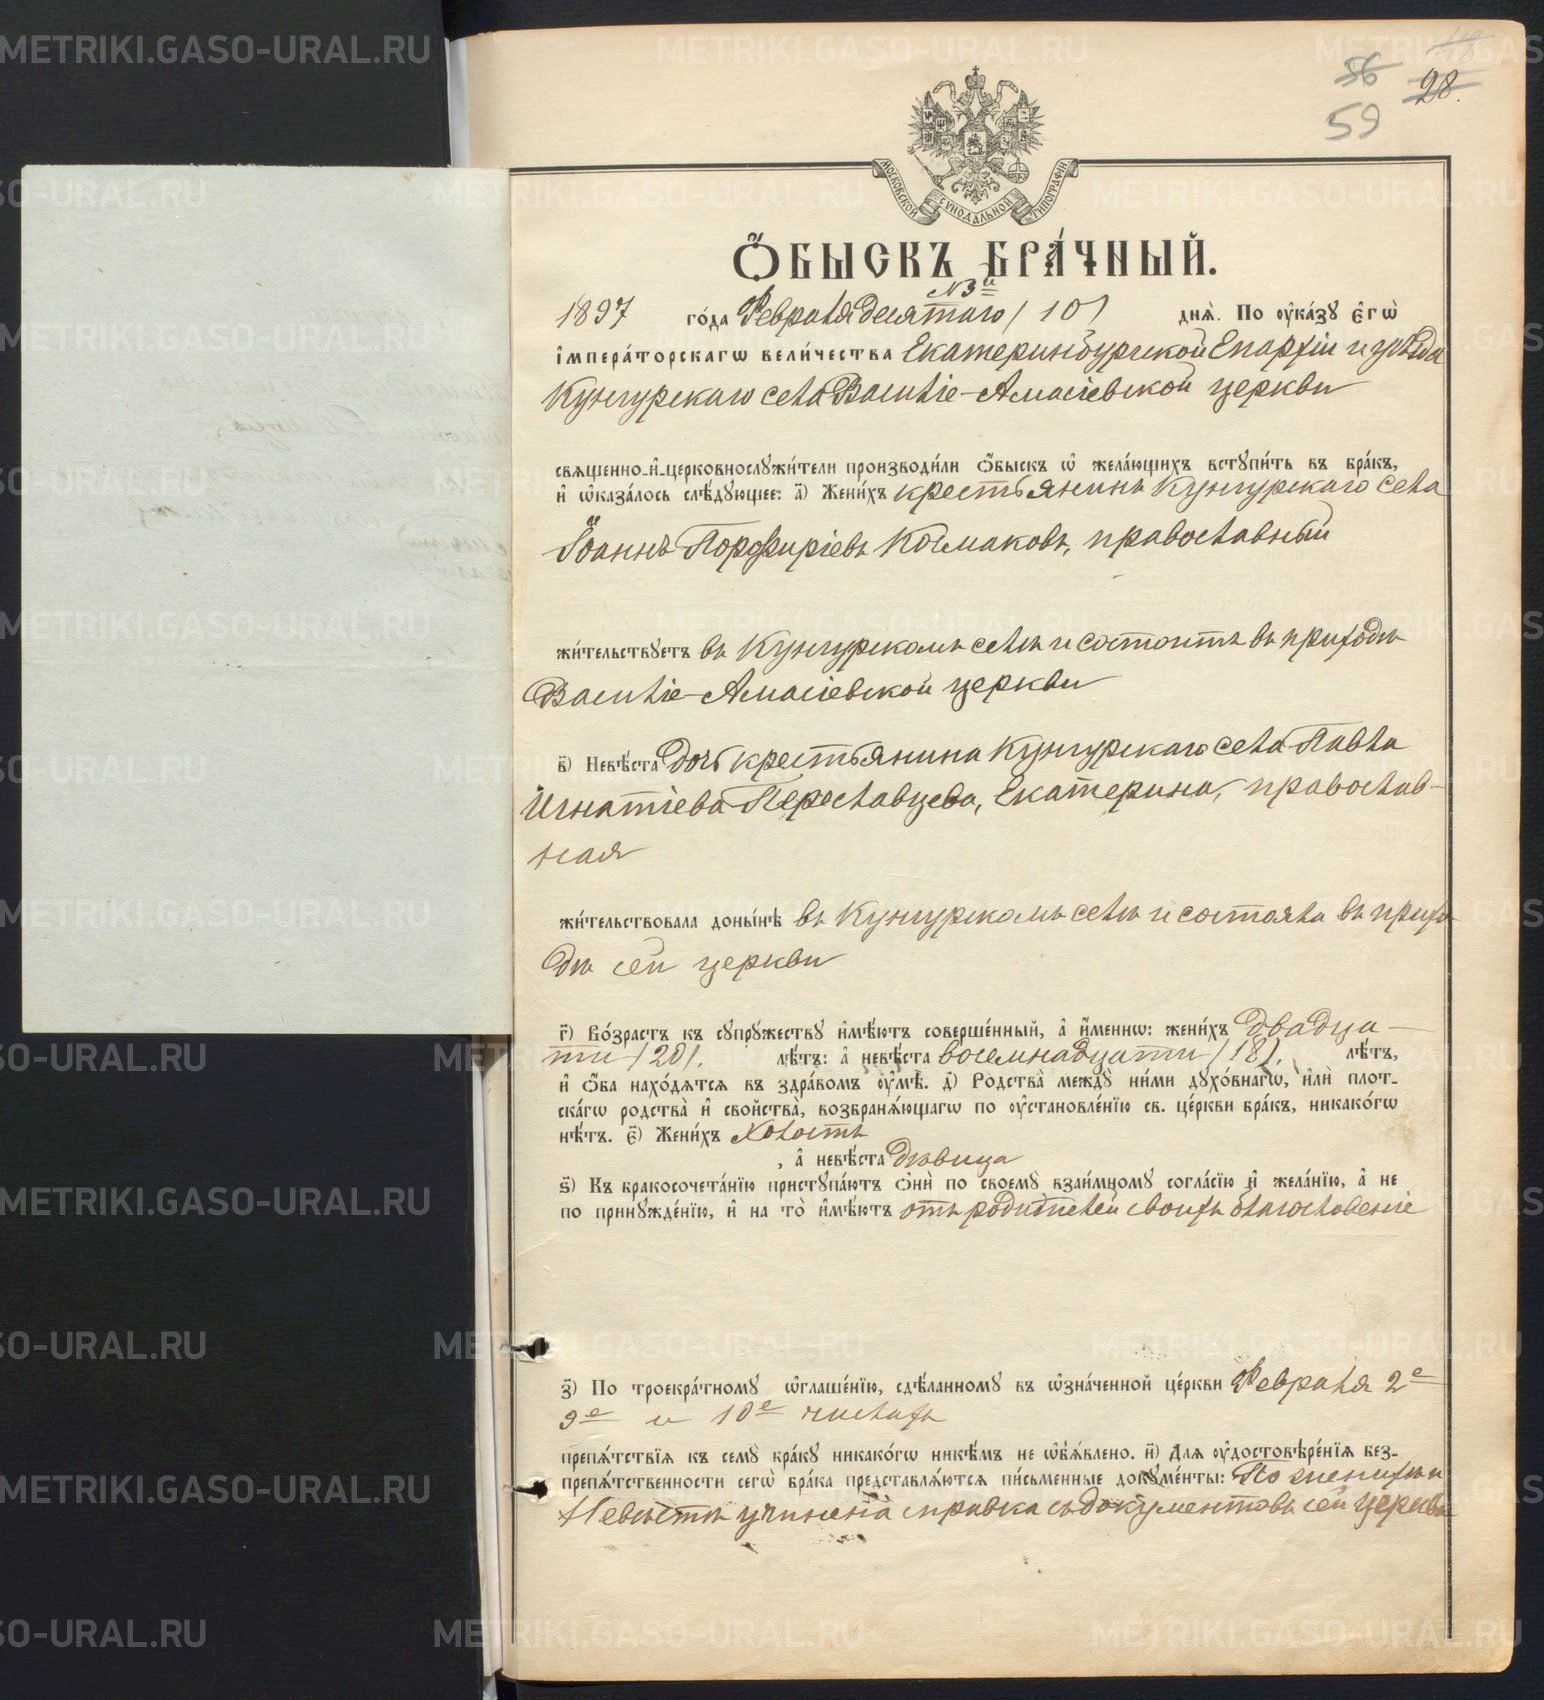 56 48
28.
59
МОСКОВСКОЙ СѴНОДАЛЬНОЙ ТИПОГРАФІИ
Ѻ҆БЫСКЪ БРА́ЧНЫЙ.
№ 3й
1897 го́да Февраля десятаго /10/ днѧ̀. По ᲂу҆ка́зꙋ є҆гѡ̀
і҆мпера́торскагѡ вели́чества Екатеринбургской Епархіи и уѣзда
Кунгурскаго села Василіе-Амасіевской церкви
свѧщенно-и҆-церковнослꙋжи́тели производи́ли ѻ҆́быскъ ѡ҆ жела́ющихъ встꙋпи́ть въ бра́къ,
и҆ ѡ҆каза́лось слѣ́дꙋющее: а҃) Жени́хъ крестьянинъ Кунгурскаго села
Іоаннъ Порфиріевъ Космаковъ, православный
жи́тельствꙋетъ въ Кунгурскомъ селѣ и состоитъ въ приходѣ
Василіе-Амасіевской церкви
в҃) Невѣ́ста дочь крестьянина Кунгурскаго села Павла
Игнатіева Переславцева, Екатерина, православ-
ная
жи́тельствовала доны́нѣ въ Кунгурскомъ селѣ и состояла въ прихо-
дѣ сей церкви
г҃) Во́зрастъ къ сꙋпрꙋ́жествꙋ и҆мѣ́ютъ соверше́нный, а҆ и҆́меннѡ: жени́хъ двадца-
ти /20/. лѣ́тъ: а҆ невѣ́ста восемнадцати /18/. лѣ́тъ,
и҆ ѻ҆́ба нахо́дѧтсѧ въ здра́вомъ ᲂу҆мѣ̀. д҃) Родства̀ междꙋ̀ ни́ми дꙋхо́внагѡ, и҆лѝ плот-
ска́гѡ родства̀ и҆ свойства̀, возбранѧ́ющагѡ по ᲂу҆становле́нїю св. це́ркви бра́къ, никако́гѡ
нѣ́тъ. є҃) Жени́хъ холостъ
, а҆ невѣ́ста дѣвица
ѕ҃) Къ бракосочета́нїю пристꙋпа́ютъ ѻ҆нѝ по своемꙋ̀ взаи́мномꙋ согла́сїю и҆ жела́нїю, а҆ не
по принꙋжде́нїю, и҆ на то̀ и҆мѣ́ютъ отъ родителей своихъ благословеніе
з҃) По троекра́тномꙋ ѡ҆глаше́нїю, сдѣ́ланномꙋ въ ѡ҆зна́ченной це́ркви Февраля 2е
9е и 10е числахъ
препѧ́тствїѧ къ семꙋ̀ бра́кꙋ никако́гѡ никѣ́мъ не ѡ҆б̾ѧ́влено. и҃) Длѧ ᲂу҆достовѣре́нїѧ без-
препѧ́тственности сегѡ̀ бра́ка представлѧ́ютсѧ пи́сьменные докꙋме́нты: По женихѣ и
Невѣстѣ учинена справка съ документовъ сей церкви